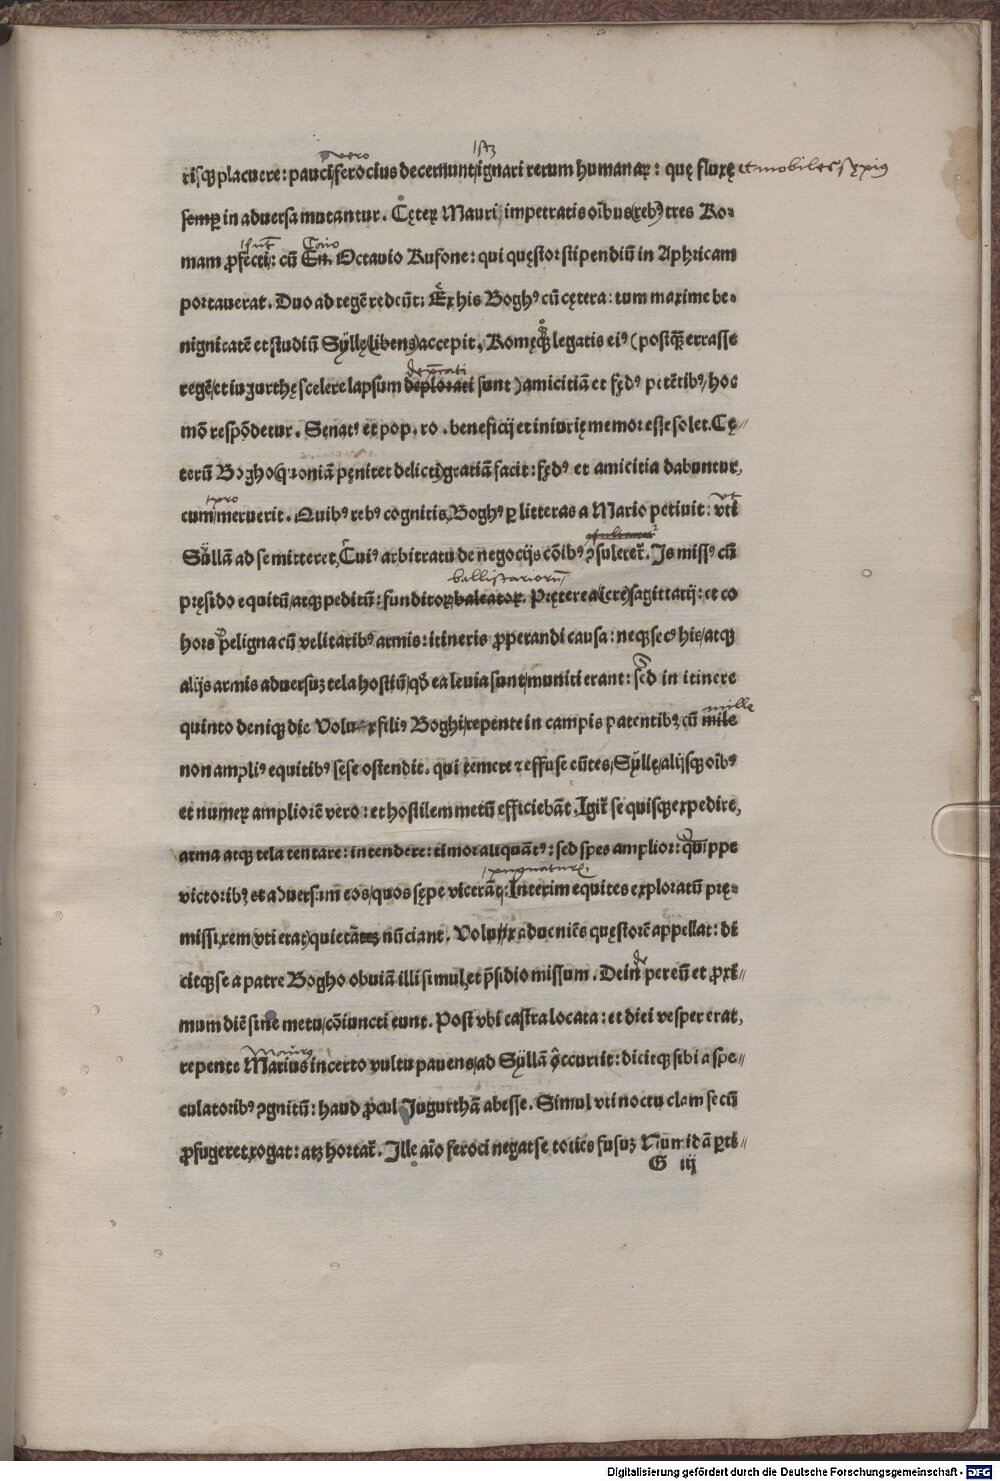 risqꝫ placuere: pauci vero ferocius decernunt / ignari rerum humanaꝝ: quę fluxę et mobiles sępius
semꝑ in aduersa mutantur. Cęteꝝ Mauri / impetratis oībus (rebꝰ) tres Ro⸗
mam ꝓfecti: cū Cn. Caio Octauio Rufone: qui quęstor stipendiū in Aphricam
portauerat. Duo ad regē redeūt: Ex his Boghꝰ cū cętera: tum maxime be⸗
nignitatē et studiū Syllę (libens) accepit. Romęqꝫ legatis eiꝰ (postqꝫ errasse
regē / et iugurthę scelere lapsum deplorati deprecati sunt) amicitiā et fędꝰ petētibꝰ / hoc
mō respōdetur. Senatꝰ et pop. ro. beneficij et iniurię memor esse solet. Cę⸗
terū Bogho (qꝛoniā pęnitet delicti) gratiā facit: fędꝰ et amicitia dabuntur,
cum meruerit. Quibꝰ rebꝰ cognitis, Boghꝰ ꝑ litteras a Mario petiuit: vti vt
Sullā ad se mitteret, Cuiꝰ arbitratu de negocijs cōibꝰ ꝯsuleret. Is missꝰ cū
pręsido equitū / atqꝫ peditū: funditoꝝ baleatoꝝ ballistariorū. Pręterea (iere) sagittarij: et co
hors peligna cū velitaribꝰ armis: itineris ꝓperandi causa: neqꝫ secꝰ his / atqꝫ
alijs armis aduersuꝫ tela hostiū / qd̄ ea leuia sunt / muniti erant: sed in itinere
quinto deniqꝫ die Volux filiꝰ Boghi / repente in campis patentibꝰ cū mile mille
non ampliꝰ equitibꝰ sese ostendit. qui temere ⁊ effuse eūtes / Syllę / alijsqꝫ oībꝰ
et numeꝝ ampliorē vero: et hostilem metū efficiebāt. Igit̄ se quisqꝫ expedire,
arma atqꝫ tela tentare: intendere: timor aliquātꝰ: sed spes amplior: quippe
victoribꝰ et aduersum eos / quos sępe vicerāt: Interim equites exploratū prę⸗
missi, rem (vti erat) quietā nūciant. Volux adueniēs quęstorē appellat: di
citqꝫ se a patre Bogho obuiā illi simul, et p̄sidio missum. Dein de pereū et ꝓxi⸗
mum diē sine metu / cōiuncti eunt. Post vbi castra locata: et diei vesper erat,
repente Marius Maurus incerto vultu pauens / ad Syllā occurrit: dicitqꝫ sibi a spe⸗
culatoribꝰ ꝯgnitū: haud ꝓcul Jugurthā abesse. Simul vti noctu clam se cū
ꝓfugeret, rogat: atꝫ hortat̄. Ille aīo feroci negat se toties fusuꝫ Numidā ꝑti⸗
G iij
Digitalisierung gefördert durch die Deutsche Forschungsgemeinschaft - DFG